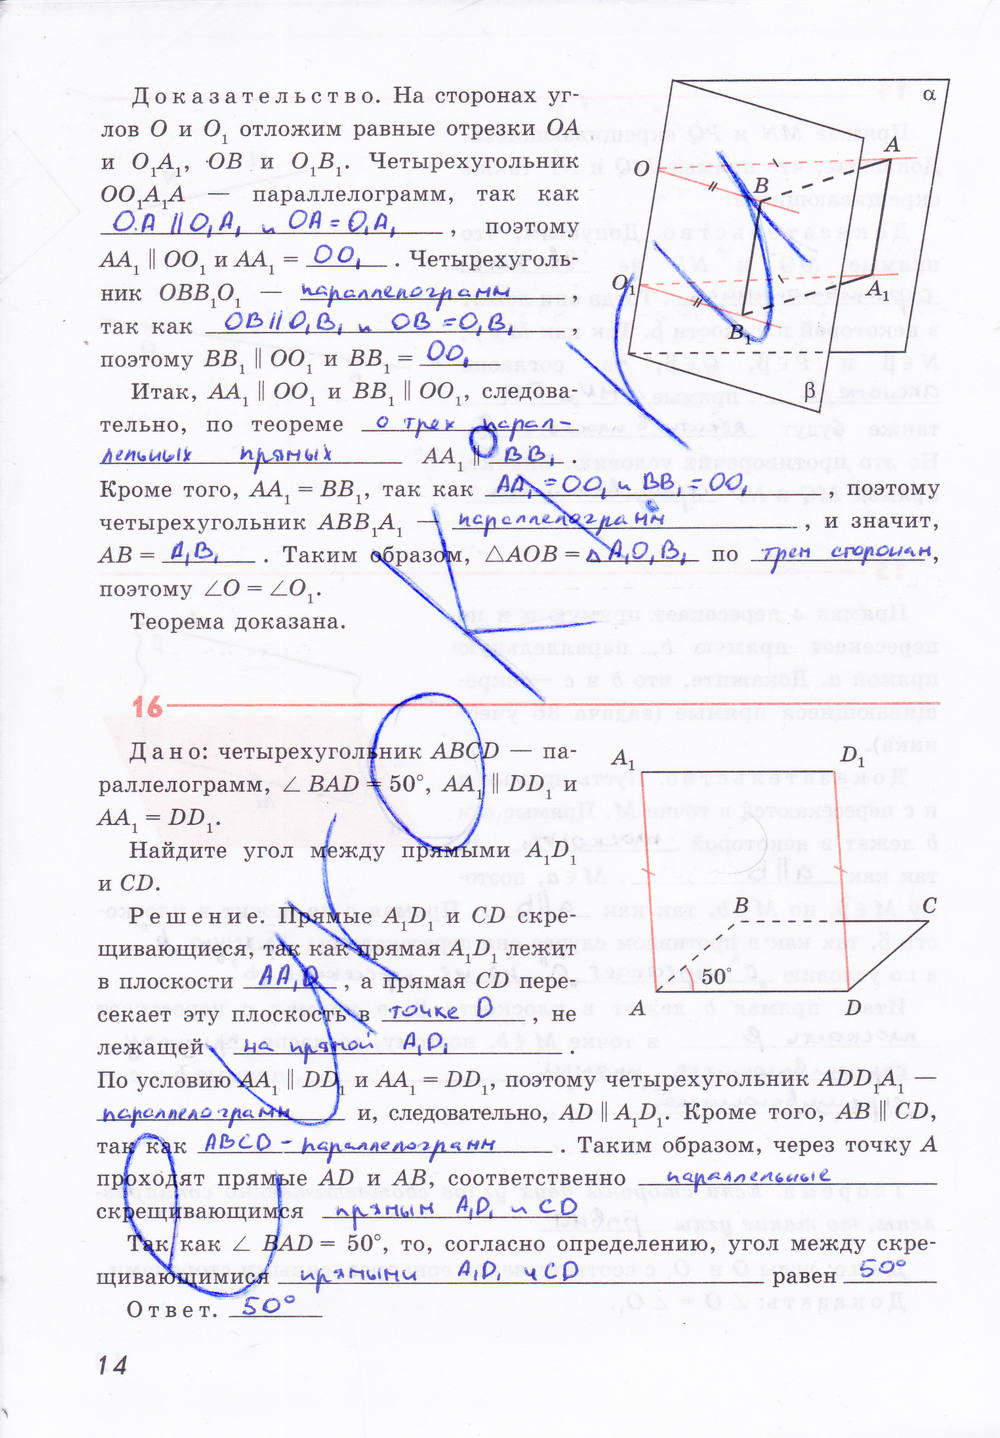 Доказательство. На сторонах уг-
лов O и O₁ отложим равные отрезки OA
и O₁A₁, OB и O₁B₁. Четырехугольник
OO₁A₁A — параллелограмм, так как
OA ∥ O₁A₁ и OA = O₁A₁, поэтому
AA₁ ∥ OO₁ и AA₁ = OO₁. Четырехуголь-
ник OBB₁O₁ — параллелограмм,
так как OB ∥ O₁B₁ и OB = O₁B₁,
поэтому BB₁ ∥ OO₁ и BB₁ = OO₁
Итак, AA₁ ∥ OO₁ и BB₁ ∥ OO₁, следова-
тельно, по теореме о трех парал-
лельных прямых AA₁ ∥ BB₁.
Кроме того, AA₁ = BB₁, так как AA₁ = OO₁ и BB₁ = OO₁, поэтому
четырехугольник ABB₁A₁ — параллелограмм, и значит,
AB = A₁B₁. Таким образом, △AOB = △A₁O₁B₁ по трем сторонам,
поэтому ∠O = ∠O₁.
Теорема доказана.
α
A
O
B
O₁
A₁
B₁
β
16
Дано: четырехугольник ABCD — па-
раллелограмм, ∠ BAD = 50°, AA₁ ∥ DD₁ и
AA₁ = DD₁.
Найдите угол между прямыми A₁D₁
и CD.
Решение. Прямые A₁D₁ и CD скре-
щивающиеся, так как прямая A₁D₁ лежит
в плоскости AA₁D, а прямая CD пере-
секает эту плоскость в точке D, не
лежащей на прямой A₁D₁.
По условию AA₁ ∥ DD₁ и AA₁ = DD₁, поэтому четырехугольник ADD₁A₁ —
параллелограмм и, следовательно, AD ∥ A₁D₁. Кроме того, AB ∥ CD,
так как ABCD - параллелограмм. Таким образом, через точку A
проходят прямые AD и AB, соответственно параллельные
скрещивающимся прямым A₁D₁ и CD
Так как ∠ BAD = 50°, то, согласно определению, угол между скре-
щивающимися прямыми A₁D₁ и CD равен 50°
Ответ. 50°
A₁
D₁
B
C
50°
A
D
14